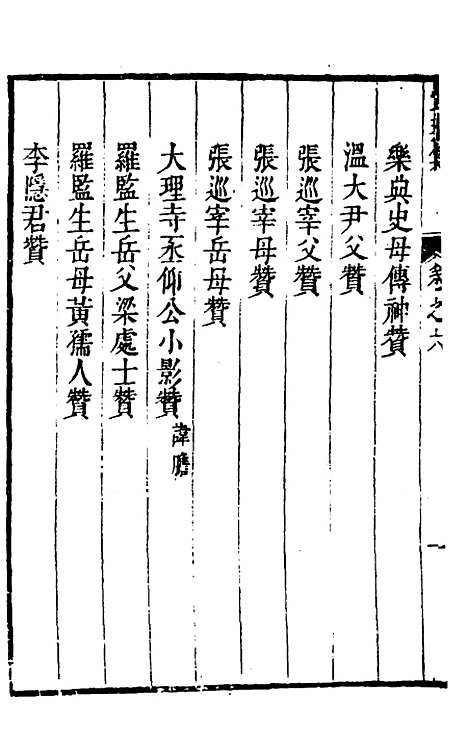 樂典史母傳神贊
溫大尹父贊
張巡宰父贊
張巡宰母贊
張巡宰岳母贊
大理寺丞仰公小影贊諱瞻
羅監生岳父梁處士贊
羅監生岳母黃孺人贊
李隱君贊
卷之六
一